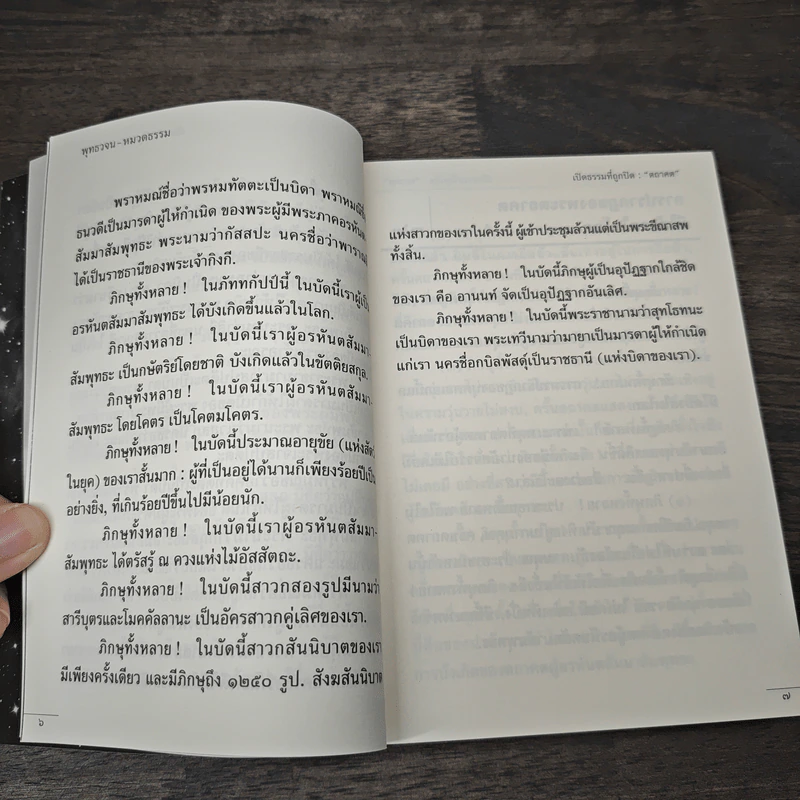 พุทธวจน - หมวดธรรม
พราหมณ์ชื่อว่าพรหมทัตตะเป็นบิดา พราหมณี
ธนวดีเป็นมารดาผู้ให้กำเนิด ของพระผู้มีพระภาคอรหันต
สัมมาสัมพุทธะ พระนามว่ากัสสปะ นครชื่อว่าพาราณสี
ได้เป็นราชธานีของพระเจ้ากิงกี.
ภิกษุทั้งหลาย ! ในภัททกัปป์นี้ ในบัดนี้เราผู้เป็น
อรหันตสัมมาสัมพุทธะ ได้บังเกิดขึ้นแล้วในโลก.
ภิกษุทั้งหลาย ! ในบัดนี้เราผู้อรหันตสัมมา-
สัมพุทธะ เป็นกษัตริย์โดยชาติ บังเกิดแล้วในขัตติยสกุล.
ภิกษุทั้งหลาย ! ในบัดนี้เราผู้อรหันตสัมมา-
สัมพุทธะ โดยโคตร เป็นโคตมโคตร.
ภิกษุทั้งหลาย ! ในบัดนี้ประมาณอายุขัย (แห่งสัตว์
ในยุค) ของเราสั้นมาก : ผู้ที่เป็นอยู่ได้นานก็เพียงร้อยปีเป็น
อย่างยิ่ง, ที่เกินร้อยปีขึ้นไปมีน้อยนัก.
ภิกษุทั้งหลาย ! ในบัดนี้เราผู้อรหันตสัมมา-
สัมพุทธะ ได้ตรัสรู้ ณ ควงแห่งไม้อัสสัตถะ.
ภิกษุทั้งหลาย ! ในบัดนี้สาวกสองรูปมีนามว่า
สารีบุตรและโมคคัลลานะ เป็นอัครสาวกคู่เลิศของเรา.
ภิกษุทั้งหลาย ! ในบัดนี้สาวกสันนิบาตของเรา
มีเพียงครั้งเดียว และมีภิกษุถึง ๑๒๕๐ รูป. สังฆสันนิบาต
๖
เปิดธรรมที่ถูกปิด : "ตถาคต"
แห่งสาวกของเราในครั้งนี้ ผู้เข้าประชุมล้วนแต่เป็นพระขีณาสพ
ทั้งสิ้น.
ภิกษุทั้งหลาย ! ในบัดนี้ภิกษุผู้เป็นอุปัฏฐากใกล้ชิด
ของเรา คือ อานนท์ จัดเป็นอุปัฏฐากอันเลิศ.
ภิกษุทั้งหลาย ! ในบัดนี้พระราชานามว่าสุทโธทนะ
เป็นบิดาของเรา พระเทวีนามว่ามายาเป็นมารดาผู้ให้กำเนิด
แก่เรา นครชื่อกบิลพัสดุ์เป็นราชธานี (แห่งบิดาของเรา).
๗